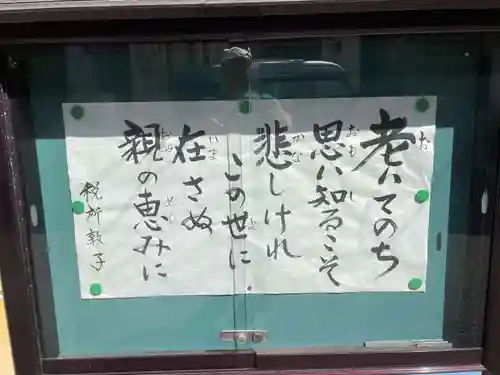 老いてのち
思い知るこそ
悲しけれ
この世に
在さぬ
親の恵みに
税所敦子